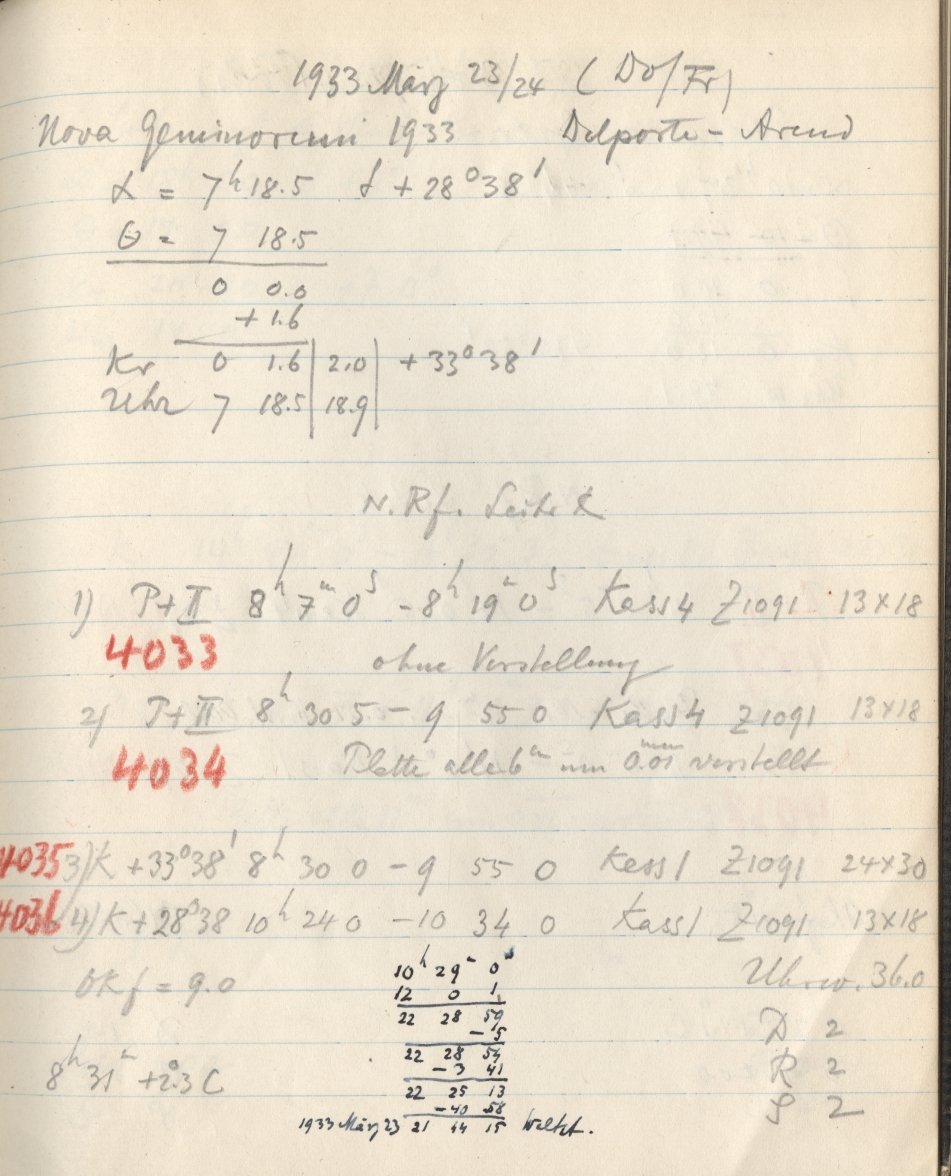 1933 März 23/24 (Do/Fr)
Nova Geminorum 1933 Delporte - Arend
α = 7h 18.5 δ + 28° 38'
θ = 7 18.5
0 0.0
+ 1.6
Kr 0 1.6 | 2.0 | + 33° 38'
Uhr 7 18.5 | 18.9
N. Rf.
1) P+II 8h 7m 0s - 8h 19m 0s Kass 4 Z1091 13x18
4033 ohne Verstellung
2) P+II 8h 30 5 - 9 55 0 Kass 4 Z1091 13x18
4034 Platte alle 6m um 0.01 verstellt
4035 3) K + 33° 38' 8h 30 0 - 9 55 0 Kass 1 Z1091 24x30
4036 4) K + 28° 38 10h 24 0 - 10 34 0 Kass 1 Z1091 13x18
OKf = 9.0 Uhrw. 36.0
10h 29m 0s
12 0 1
22 28 59
- 5
22 28 54
- 3 41
22 25 13
- 40 58
1933 März 23 21 44 15 Weltzt.
8h 31m + 2.3 C
D 2
R 2
S 2